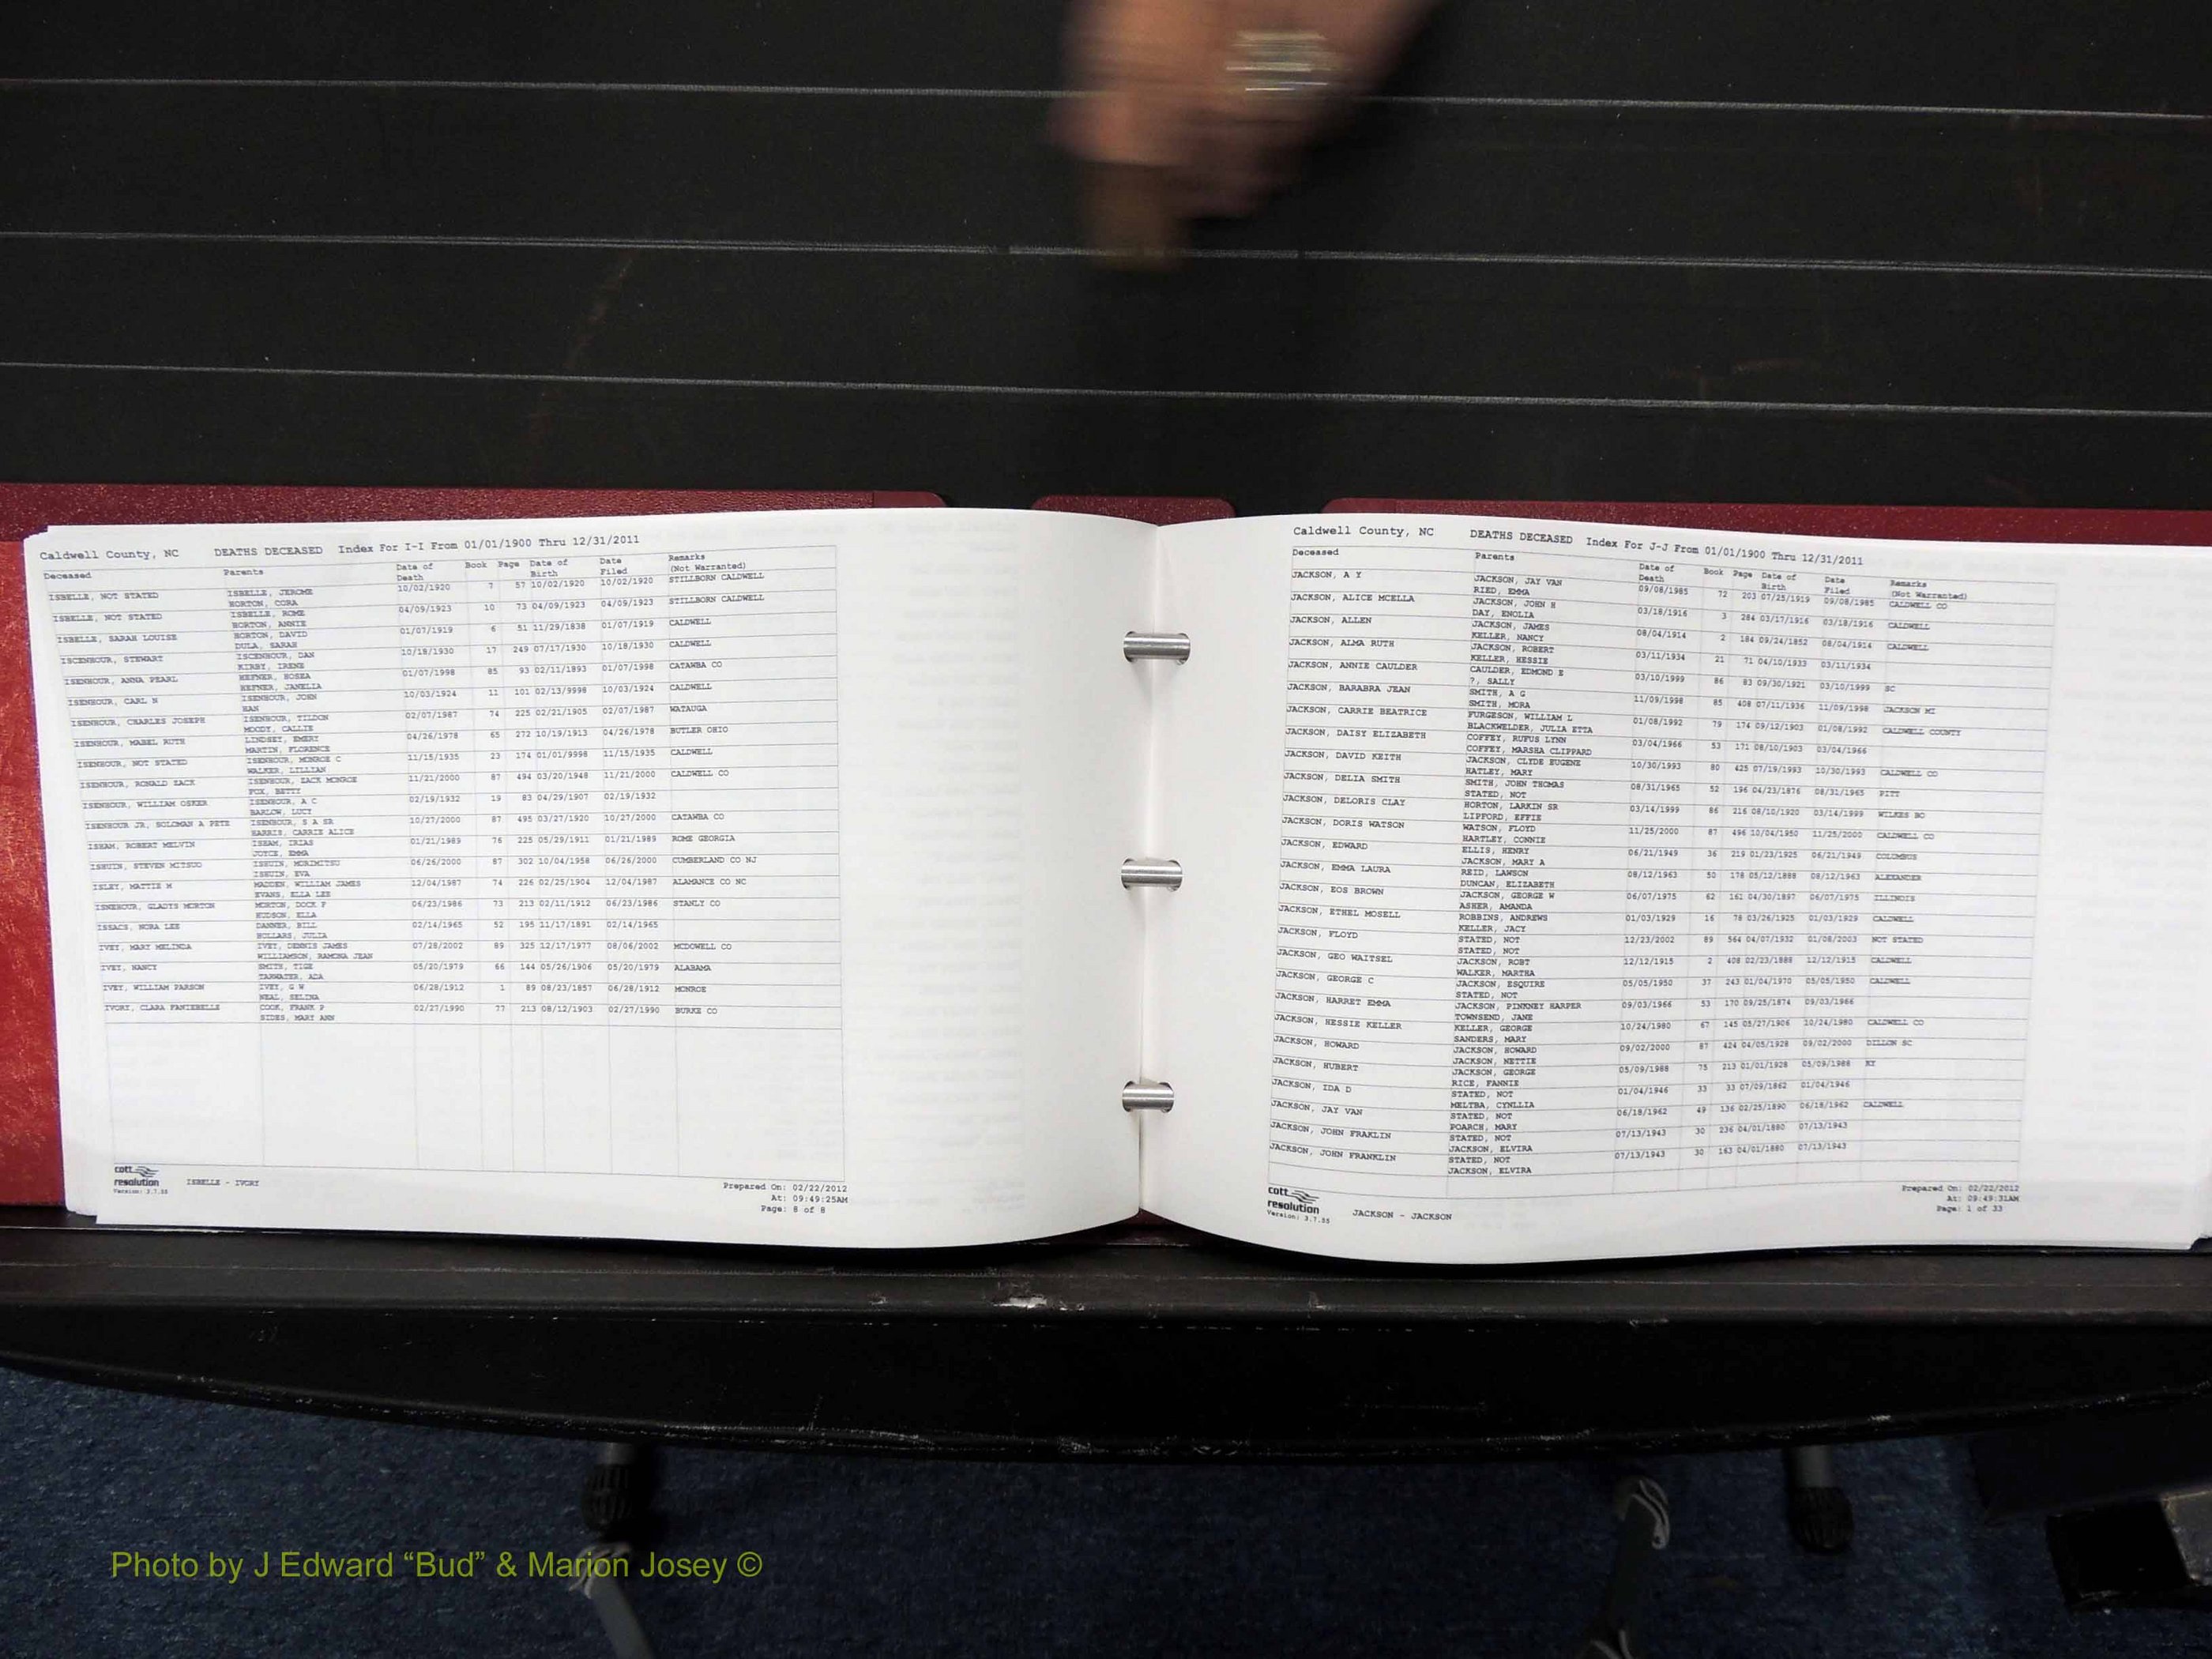 Caldwell County, NC DEATHS DECEASED Index For I-I From 01/01/1900 Thru 12/31/2011
Deceased Parents Date of Death Book Page Date of Birth Date Filed Remarks (Not Warranted)
ISBELLE, NOT STATED ISBELLE, JEROME 10/02/1920 7 57 10/02/1920 10/02/1920 STILLBORN CALDWELL
HORTON, CORA
ISBELLE, NOT STATED ISBELLE, ROME 04/09/1923 10 73 04/09/1923 04/09/1923 STILLBORN CALDWELL
HORTON, ANNIE
ISBELLE, SARAH LOUISE HORTON, DAVID 01/07/1919 6 51 11/29/1838 01/07/1919 CALDWELL
DULA, SARAH
ISCENHOUR, STEWART ISCENHOUR, DAN 10/18/1930 17 249 07/17/1930 10/18/1930 CALDWELL
KIRBY, IRENE
ISENHOUR, ANNA PEARL HEFNER, HOSEA 01/07/1998 85 93 02/11/1893 01/07/1998 CATAWBA CO
HEFNER, JANELIA
ISENHOUR, CARL N ISENHOUR, JOHN 10/03/1924 11 101 02/13/9998 10/03/1924 CALDWELL
HAN
ISENHOUR, CHARLES JOSEPH ISENHOUR, TILDON 02/07/1987 74 225 02/21/1905 02/07/1987 WATAUGA
MOODY, CALLIE
ISENHOUR, MABEL RUTH LINDSEY, EMERY 04/26/1978 65 272 10/19/1913 04/26/1978 BUTLER OHIO
MARTIN, FLORENCE
ISENHOUR, NOT STATED ISENHOUR, MONROE C 11/15/1935 23 174 01/01/9998 11/15/1935 CALDWELL
WALKER, LILLIAN
ISENHOUR, RONALD ZACK ISENHOUR, ZACK MONROE 11/21/2000 87 494 03/20/1948 11/21/2000 CALDWELL CO
FOX, BETTY
ISENHOUR, WILLIAM OSKER ISENHOUR, A C 02/19/1932 19 83 04/29/1907 02/19/1932
BARLOW, LUCY
ISENHOUR JR, SOLOMAN A PETE ISENHOUR, S A SR 10/27/2000 87 495 03/27/1920 10/27/2000 CATAWBA CO
HARRIS, CARRIE ALICE
ISHAM, ROBERT MELVIN ISHAM, IRIAS 01/21/1989 76 225 05/29/1911 01/21/1989 ROME GEORGIA
JOYCE, EMMA
ISHUIN, STEVEN MITSUO ISHUIN, MORIMITSU 06/26/2000 87 302 10/04/1958 06/26/2000 CUMBERLAND CO NJ
ISHUIN, EVA
ISLEY, MATTIE M MADDEN, WILLIAM JAMES 12/04/1987 74 226 02/25/1904 12/04/1987 ALAMANCE CO NC
EVANS, ELLA LEE
ISNEHOUR, GLADYS MORTON MORTON, DOCK P 06/23/1986 73 213 02/11/1912 06/23/1986 STANLY CO
HUDSON, ELLA
ISSACS, NORA LEE DANNER, BILL 02/14/1965 52 195 11/17/1891 02/14/1965
HOLLARS, JULIA
IVEY, MARY MELINDA IVEY, DENNIS JAMES 07/28/2002 89 325 12/17/1977 08/06/2002 MCDOWELL CO
WILLIAMSON, RAMONA JEAN
IVEY, NANCY SMITH, TIGE 05/20/1979 66 144 05/26/1906 05/20/1979 ALABAMA
TARWATER, ADA
IVEY, WILLIAM PARSON IVEY, G W 06/28/1912 1 89 08/23/1857 06/28/1912 MONROE
NEAL, SELINA
IVORY, CLARA FANIEBELLE COOK, FRANK P 02/27/1990 77 213 08/12/1903 02/27/1990 BURKE CO
SIDES, MARY ANN
cott
resolution
Version: 3.7.55
ISBELLE - IVORY
Prepared On: 02/22/2012
At: 09:49:25AM
Page: 8 of 8
Caldwell County, NC DEATHS DECEASED Index For J-J From 01/01/1900 Thru 12/31/2011
Deceased Parents Date of Death Book Page Date of Birth Date Filed Remarks (Not Warranted)
JACKSON, A Y JACKSON, JAY VAN 09/08/1985 72 203 07/25/1919 09/08/1985 CALDWELL CO
RIED, EMMA
JACKSON, ALICE MCELLA JACKSON, JOHN H 03/18/1916 3 284 03/17/1916 03/18/1916 CALDWELL
DAY, ENOLIA
JACKSON, ALLEN JACKSON, JAMES 08/04/1914 2 184 09/24/1852 08/04/1914 CALDWELL
KELLER, NANCY
JACKSON, ALMA RUTH JACKSON, ROBERT 03/11/1934 21 71 04/10/1933 03/11/1934
KELLER, HESSIE
JACKSON, ANNIE CAULDER CAULDER, EDMOND E 03/10/1999 86 83 09/30/1921 03/10/1999 SC
?, SALLY
JACKSON, BARABRA JEAN SMITH, A G 11/09/1998 85 408 07/11/1936 11/09/1998 JACKSON MI
SMITH, MORA
JACKSON, CARRIE BEATRICE FURGESON, WILLIAM L 01/08/1992 79 174 09/12/1903 01/08/1992 CALDWELL COUNTY
BLACKWELDER, JULIA ETTA
JACKSON, DAISY ELIZABETH COFFEY, RUFUS LYNN 03/04/1966 53 171 08/10/1903 03/04/1966
COFFEY, MARSHA CLIPPARD
JACKSON, DAVID KEITH JACKSON, CLYDE EUGENE 10/30/1993 80 425 07/19/1993 10/30/1993 CALDWELL CO
HATLEY, MARY
JACKSON, DELIA SMITH SMITH, JOHN THOMAS 08/31/1965 52 196 04/23/1876 08/31/1965 PITT
STATED, NOT
JACKSON, DELORIS CLAY HORTON, LARKIN SR 03/14/1999 86 216 08/10/1920 03/14/1999 WILKES BO
LIPFORD, EFFIE
JACKSON, DORIS WATSON WATSON, FLOYD 11/25/2000 87 496 10/04/1950 11/25/2000 CALDWELL CO
HARTLEY, CONNIE
JACKSON, EDWARD ELLIS, HENRY 06/21/1949 36 219 01/23/1925 06/21/1949 COLUMBUS
JACKSON, MARY A
JACKSON, EMMA LAURA REID, LAWSON 08/12/1963 50 178 05/12/1888 08/12/1963 ALEXANDER
DUNCAN, ELIZABETH
JACKSON, EOS BROWN JACKSON, GEORGE W 06/07/1975 62 161 04/30/1897 06/07/1975 ILLINOIS
ASHER, AMANDA
JACKSON, ETHEL MOSELL ROBBINS, ANDREWS 01/03/1929 16 78 03/26/1925 01/03/1929 CALDWELL
KELLER, JACY
JACKSON, FLOYD STATED, NOT 12/23/2002 89 564 04/07/1932 01/08/2003 NOT STATED
STATED, NOT
JACKSON, GEO WAITSEL JACKSON, ROBT 12/12/1915 2 408 02/23/1888 12/12/1915 CALDWELL
WALKER, MARTHA
JACKSON, GEORGE C JACKSON, ESQUIRE 05/05/1950 37 243 01/04/1970 05/05/1950 CALDWELL
STATED, NOT
JACKSON, HARRET EMMA JACKSON, PINKNEY HARPER 09/03/1966 53 170 09/25/1874 09/03/1966
TOWNSEND, JANE
JACKSON, HESSIE KELLER KELLER, GEORGE 10/24/1980 67 145 05/27/1906 10/24/1980 CALDWELL CO
SANDERS, MARY
JACKSON, HOWARD JACKSON, HOWARD 09/02/2000 87 424 04/05/1928 09/02/2000 DILLON SC
JACKSON, NETTIE
JACKSON, HUBERT JACKSON, GEORGE 05/09/1988 75 213 01/01/1928 05/09/1988 KY
RICE, FANNIE
JACKSON, IDA D STATED, NOT 01/04/1946 33 33 07/09/1862 01/04/1946
MELTBA, CYNLLIA
JACKSON, JAY VAN STATED, NOT 06/18/1962 49 136 02/25/1890 06/18/1962 CALDWELL
POARCH, MARY
JACKSON, JOHN FRAKLIN STATED, NOT 07/13/1943 30 236 04/01/1880 07/13/1943
JACKSON, ELVIRA
JACKSON, JOHN FRANKLIN STATED, NOT 07/13/1943 30 163 04/01/1880 07/13/1943
JACKSON, ELVIRA
cott
resolution
Version: 3.7.55
JACKSON - JACKSON
Prepared On: 02/22/2012
At: 09:49:31AM
Page: 1 of 33
Photo by J Edward “Bud” & Marion Josey ©